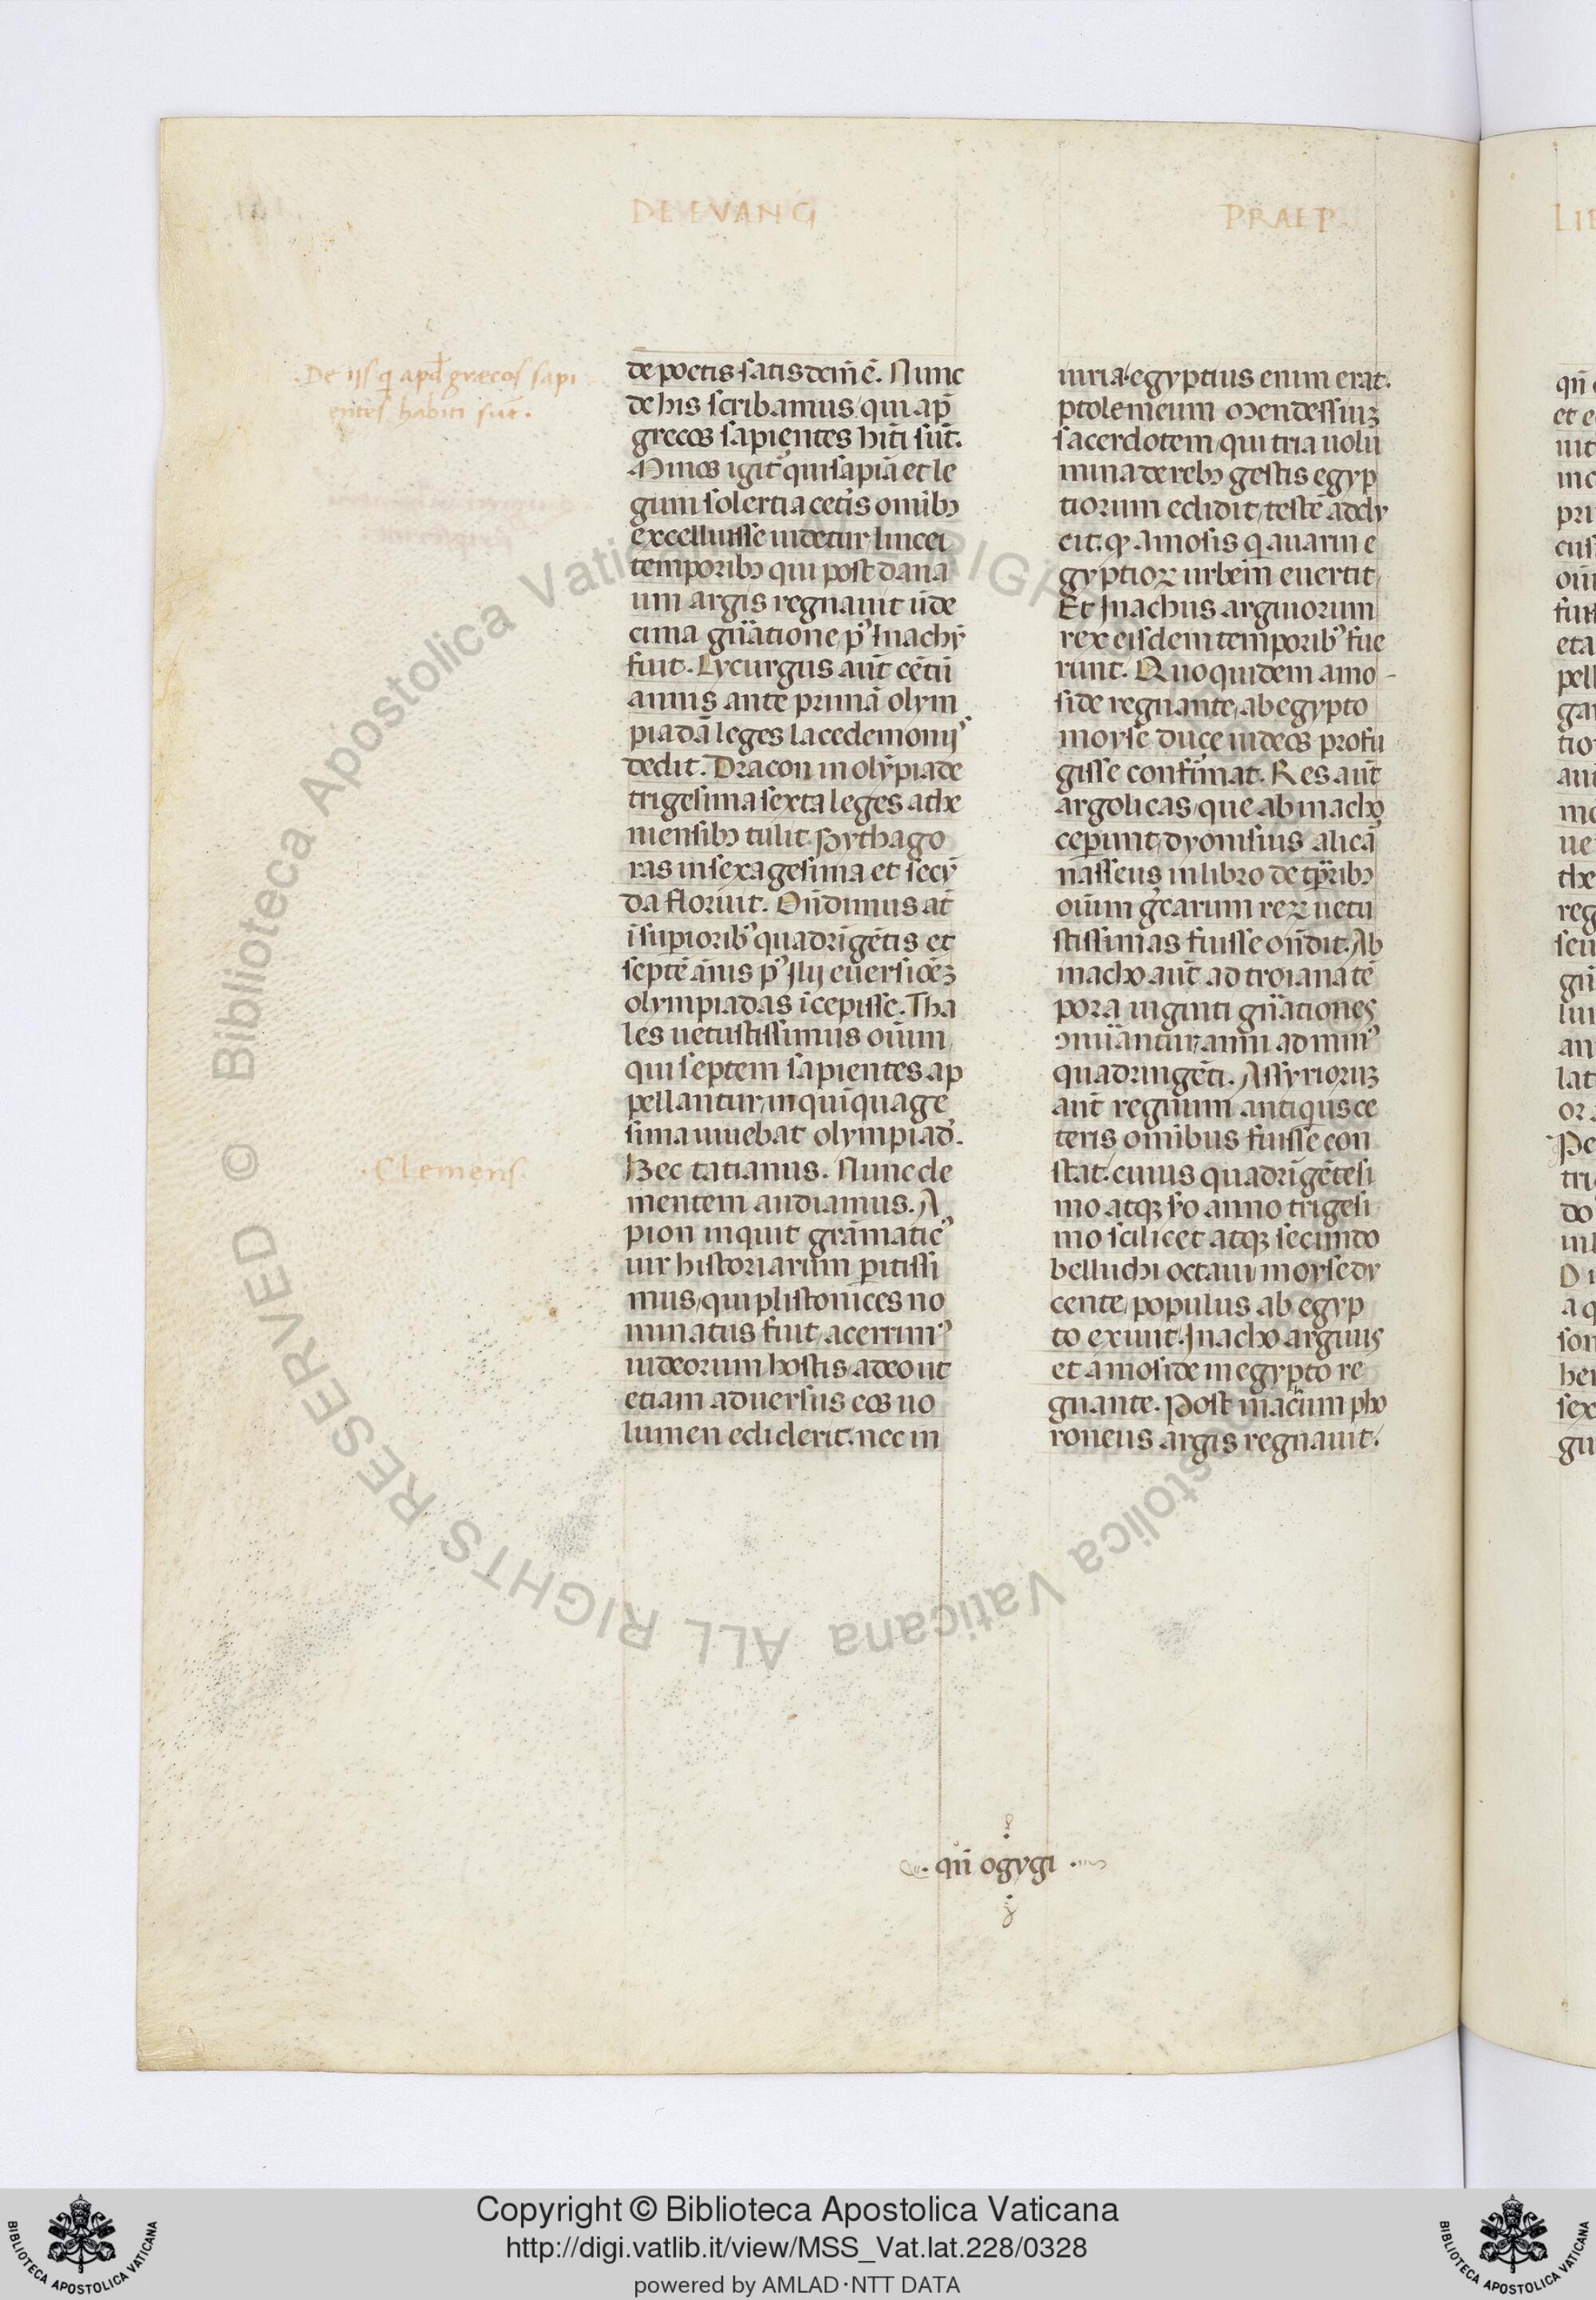 DE EVANG PRAEP
De ijs q̄ apd̄ græcos sapi
entes habiti sūt.
de poetis satis dc̄m ē. Nunc
de his scribamus, qui ap̄
grecos sapientes hīti sūt.
Minos igit᷑ qui sapīa et le
gum solertia cet̄is omībꝫ
excelluisse uidetur, lincei
temporibꝫ qui post dana
um argis regnauit ūde
cima gn̄atione pꝰ Inachȳ
fuit. Lycurgus aūt cētū
annis ante primā olym
piadā leges lacedemonijꝰ
dedit. Dracon in olȳpiade
trigesima sexta leges athe
niensibꝫ tulit. Pythago
ras in sexagesima et secū
da floruit. Oñdimus at̄
ī supioribꝰ quadrīgētis et
septē ānis pꝰ Ilij euersiōeꝫ
olympiadas īcepisse. Tha
les uetustissimus oīum
qui septem sapientes ap
pellantur, in quīquage
sima uiuebat olympiad.
Hec tatianus. Nunc cle
Clemens.
mentem audiamus. A
pion inquit grāmaticꝰ
uir historiarum pitissi
mus, qui plistonices no
minatus fuit, acerrimꝰ
iudeorum hostis adeo ut
etiam aduersus eos uo
lumen ediderit. nec in
iuria. egyptius enim erat.
ptolemeum mendessiuꝫ
sacerdotem, qui tria uolu
mina de rebꝫ gestis egyp
tiorum edidit, testē addu
cit. ꝙ amosis q̄ auarin e
gyptioꝝ urbem euertit,
Et Inachus arginorum
rex eisdem temporibꝰ fue
runt. Quo quidem amo-
side regnante, ab egypto
moyse duce iudeos profu
gisse confirmat. Res aūt
argolicas, que ab inacho
ceperunt, dyonisius alicā
nasseus in libro de tp̄ribꝫ
oīum grecarum reꝝ uetu
stissimas fuisse oñdit. Ab
inacho aūt ad troiana tē
pora uiginti gn̄ationes
ꝯnūantur, anni ad minꝰ
quadringēti. Assyrioruꝫ
aūt regnum antiqus ce
teris omībus fuisse con
stat. cuius quadrīgētesi
mo atqꝫ s̄o anno trigesi
mo scilicet atqꝫ secundo
belluchi octaui, moyse du
cente, populus ab egyp
to exiuit. Inacho argiuis
et amoside in egypto re
gnante. Post inachum pho
roneus argis regnauit.
qn̄ ogygi
Copyright © Biblioteca Apostolica Vaticana
http://digi.vatlib.it/view/MSS_Vat.lat.228/0328
powered by AMLAD·NTT DATA